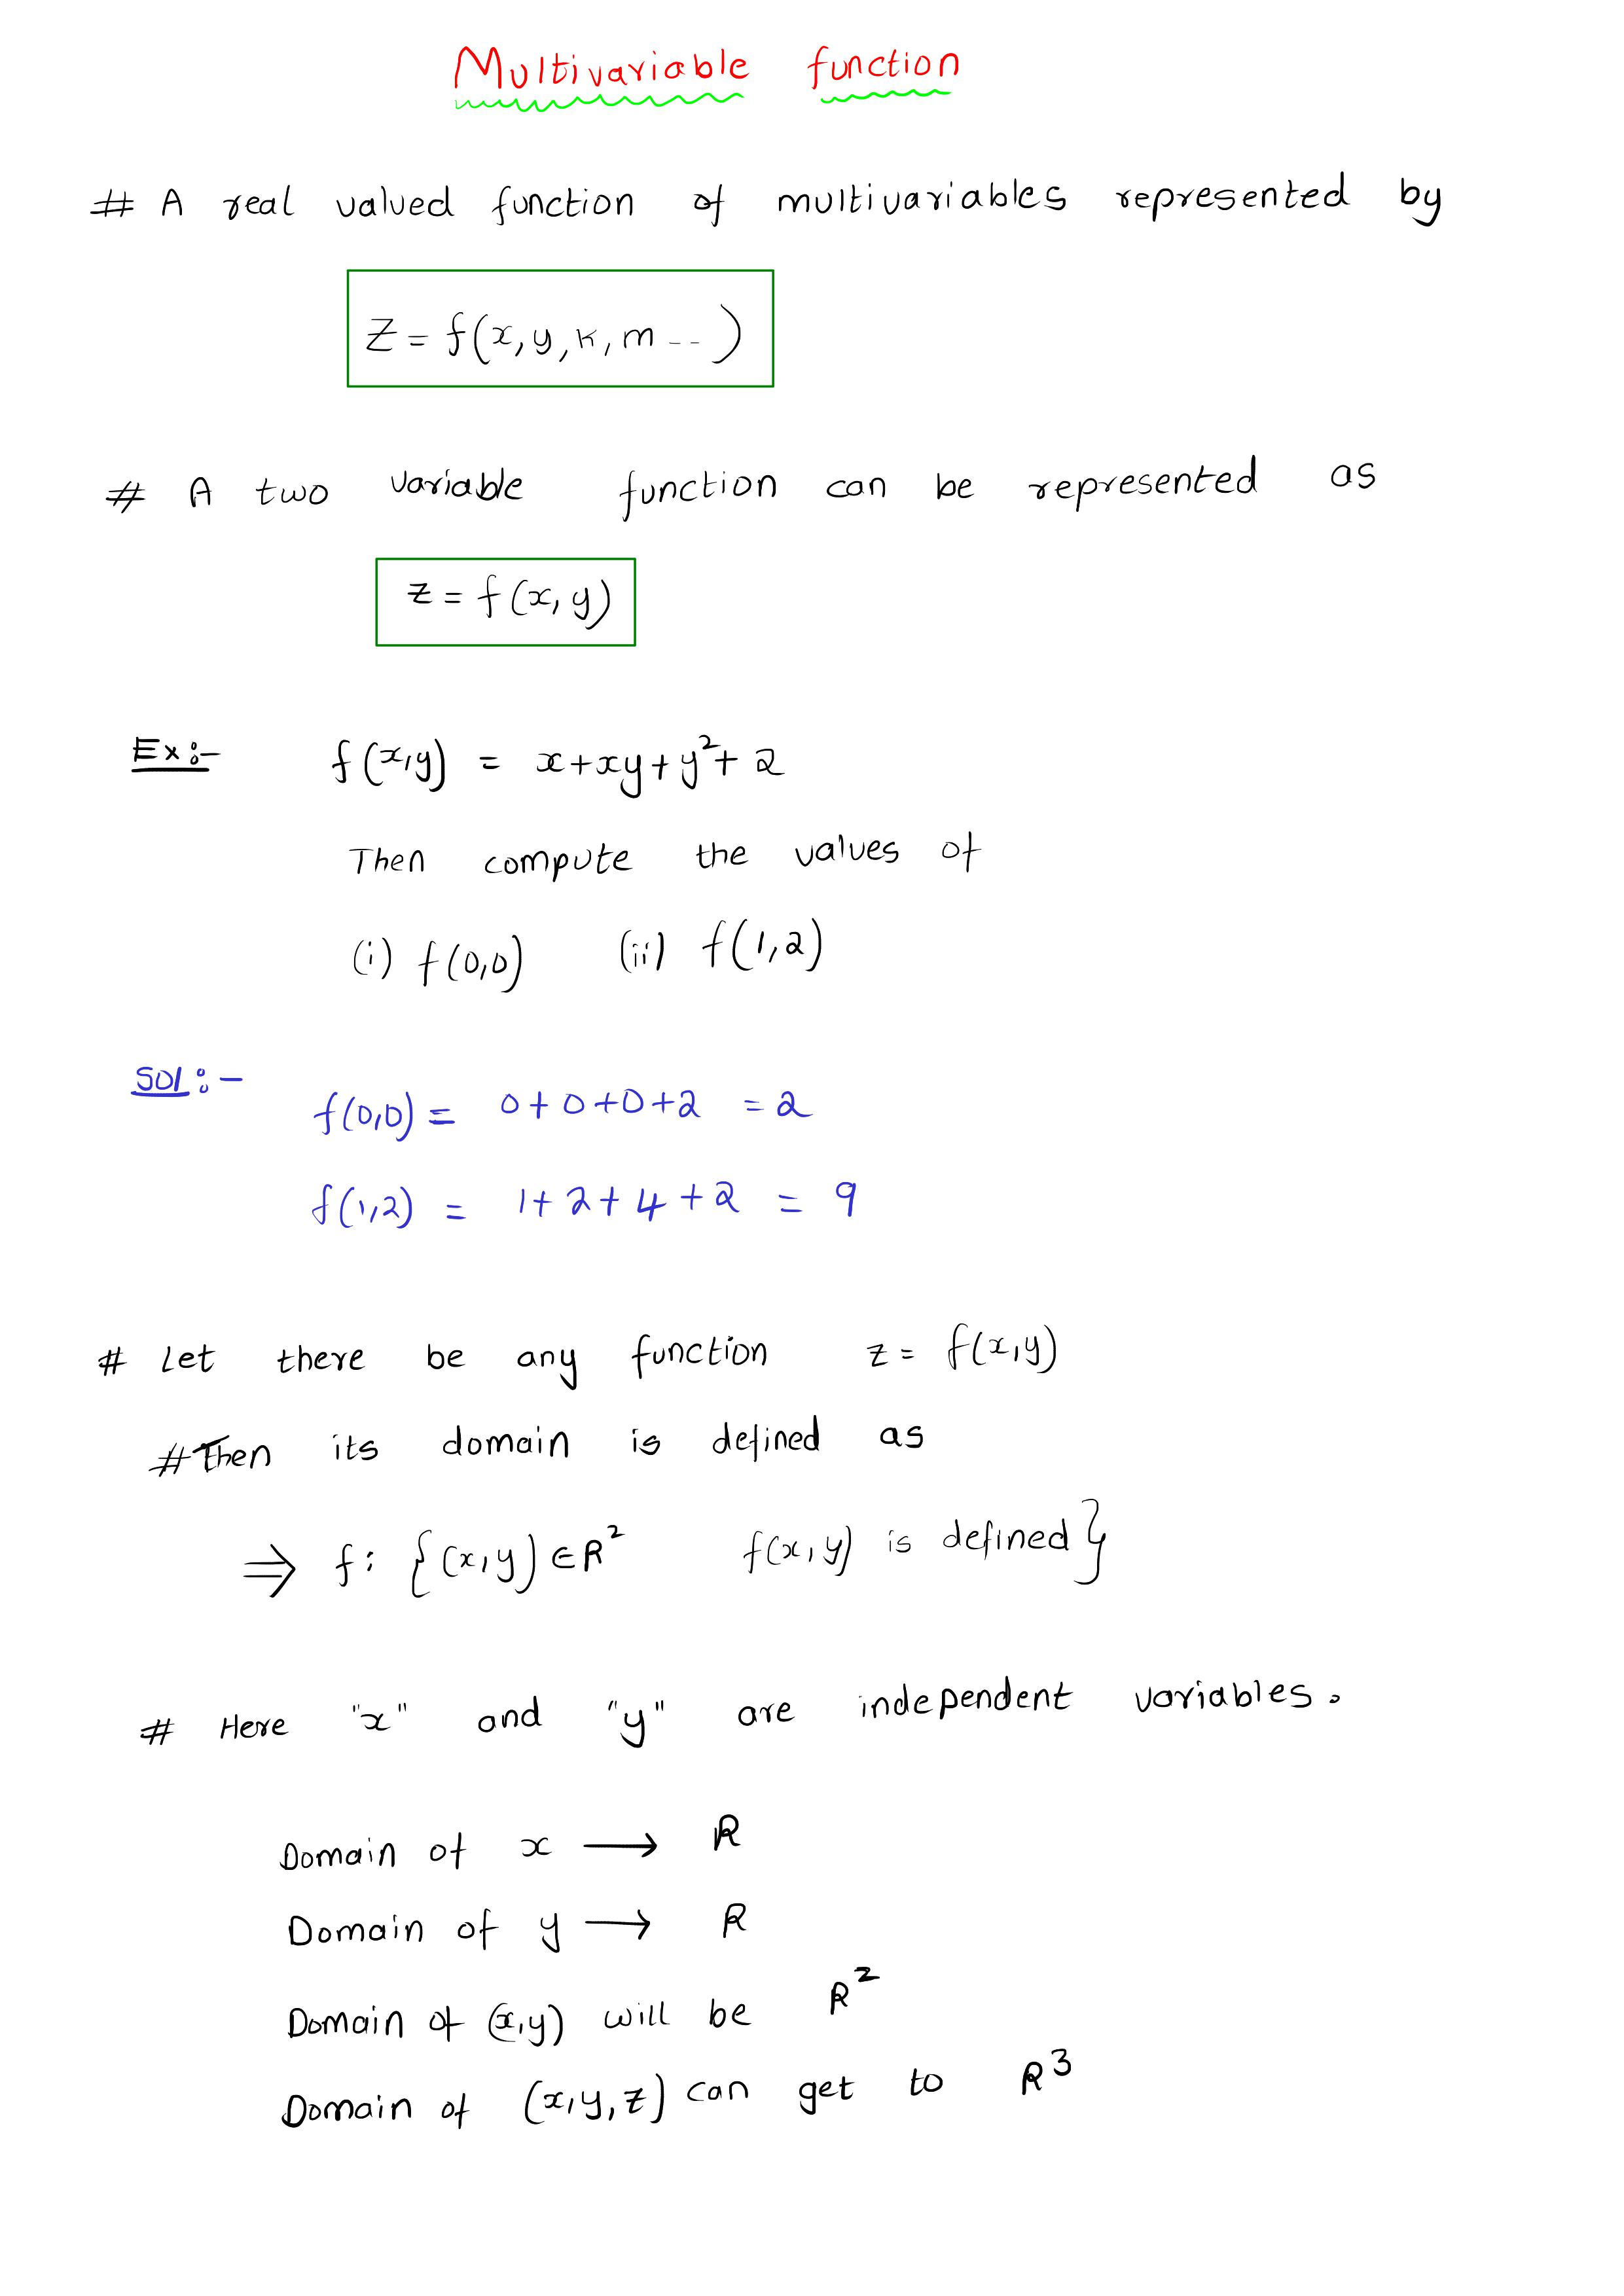 Multivariable function
# A real valued function of multivariables represented by
Z = f(x, y, k, m -- )
# A two variable function can be represented as
z = f(x, y)
Ex:- f(x,y) = x+xy+y²+2
Then compute the values of
(i) f(0,0) (ii) f(1,2)
Sol:-
f(0,0) = 0+0+0+2 = 2
f(1,2) = 1+2+4+2 = 9
# Let there be any function z = f(x,y)
#Then its domain is defined as
⇒ f: {(x,y)∈R² f(x,y) is defined}
# Here "x" and "y" are independent variables.
Domain of x ⟶ R
Domain of y ⟶ R
Domain of (x,y) will be R²
Domain of (x,y,z) can get to R³